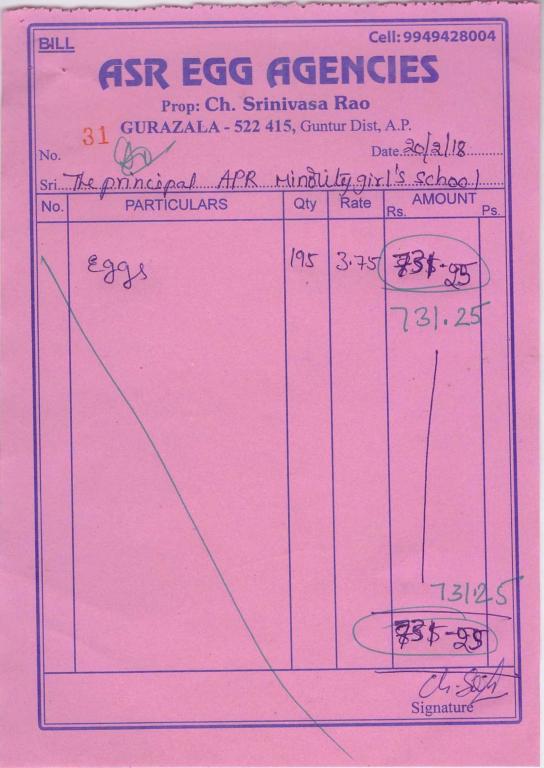 BILL
Cell: 9949428004
ASR EGG AGENCIES
Prop: Ch. Srinivasa Rao
GURAZALA - 522 415, Guntur Dist, A.P.
No. 31
Date. 20/2/18
Sri. The principal APR Minority girl's school
No. PARTICULARS Qty Rate AMOUNT
Rs. Ps.
Eggs 195 3.75
731.25
731.25
Signature